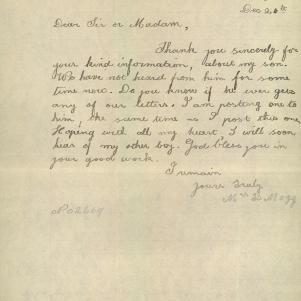 Dec 26th
Dear Sir or Madam,
Thank you sincerely for
your kind information, about my son.
We have not heard from him for some
time now. Do you know if he ever gets
any of our letters. I am posting one to
him, the same time as I post this one
Hoping with all my heart I will soon
hear of my other boy. God bless you in
your good work.
I remain
Yours Truly
Mrs E Mogg